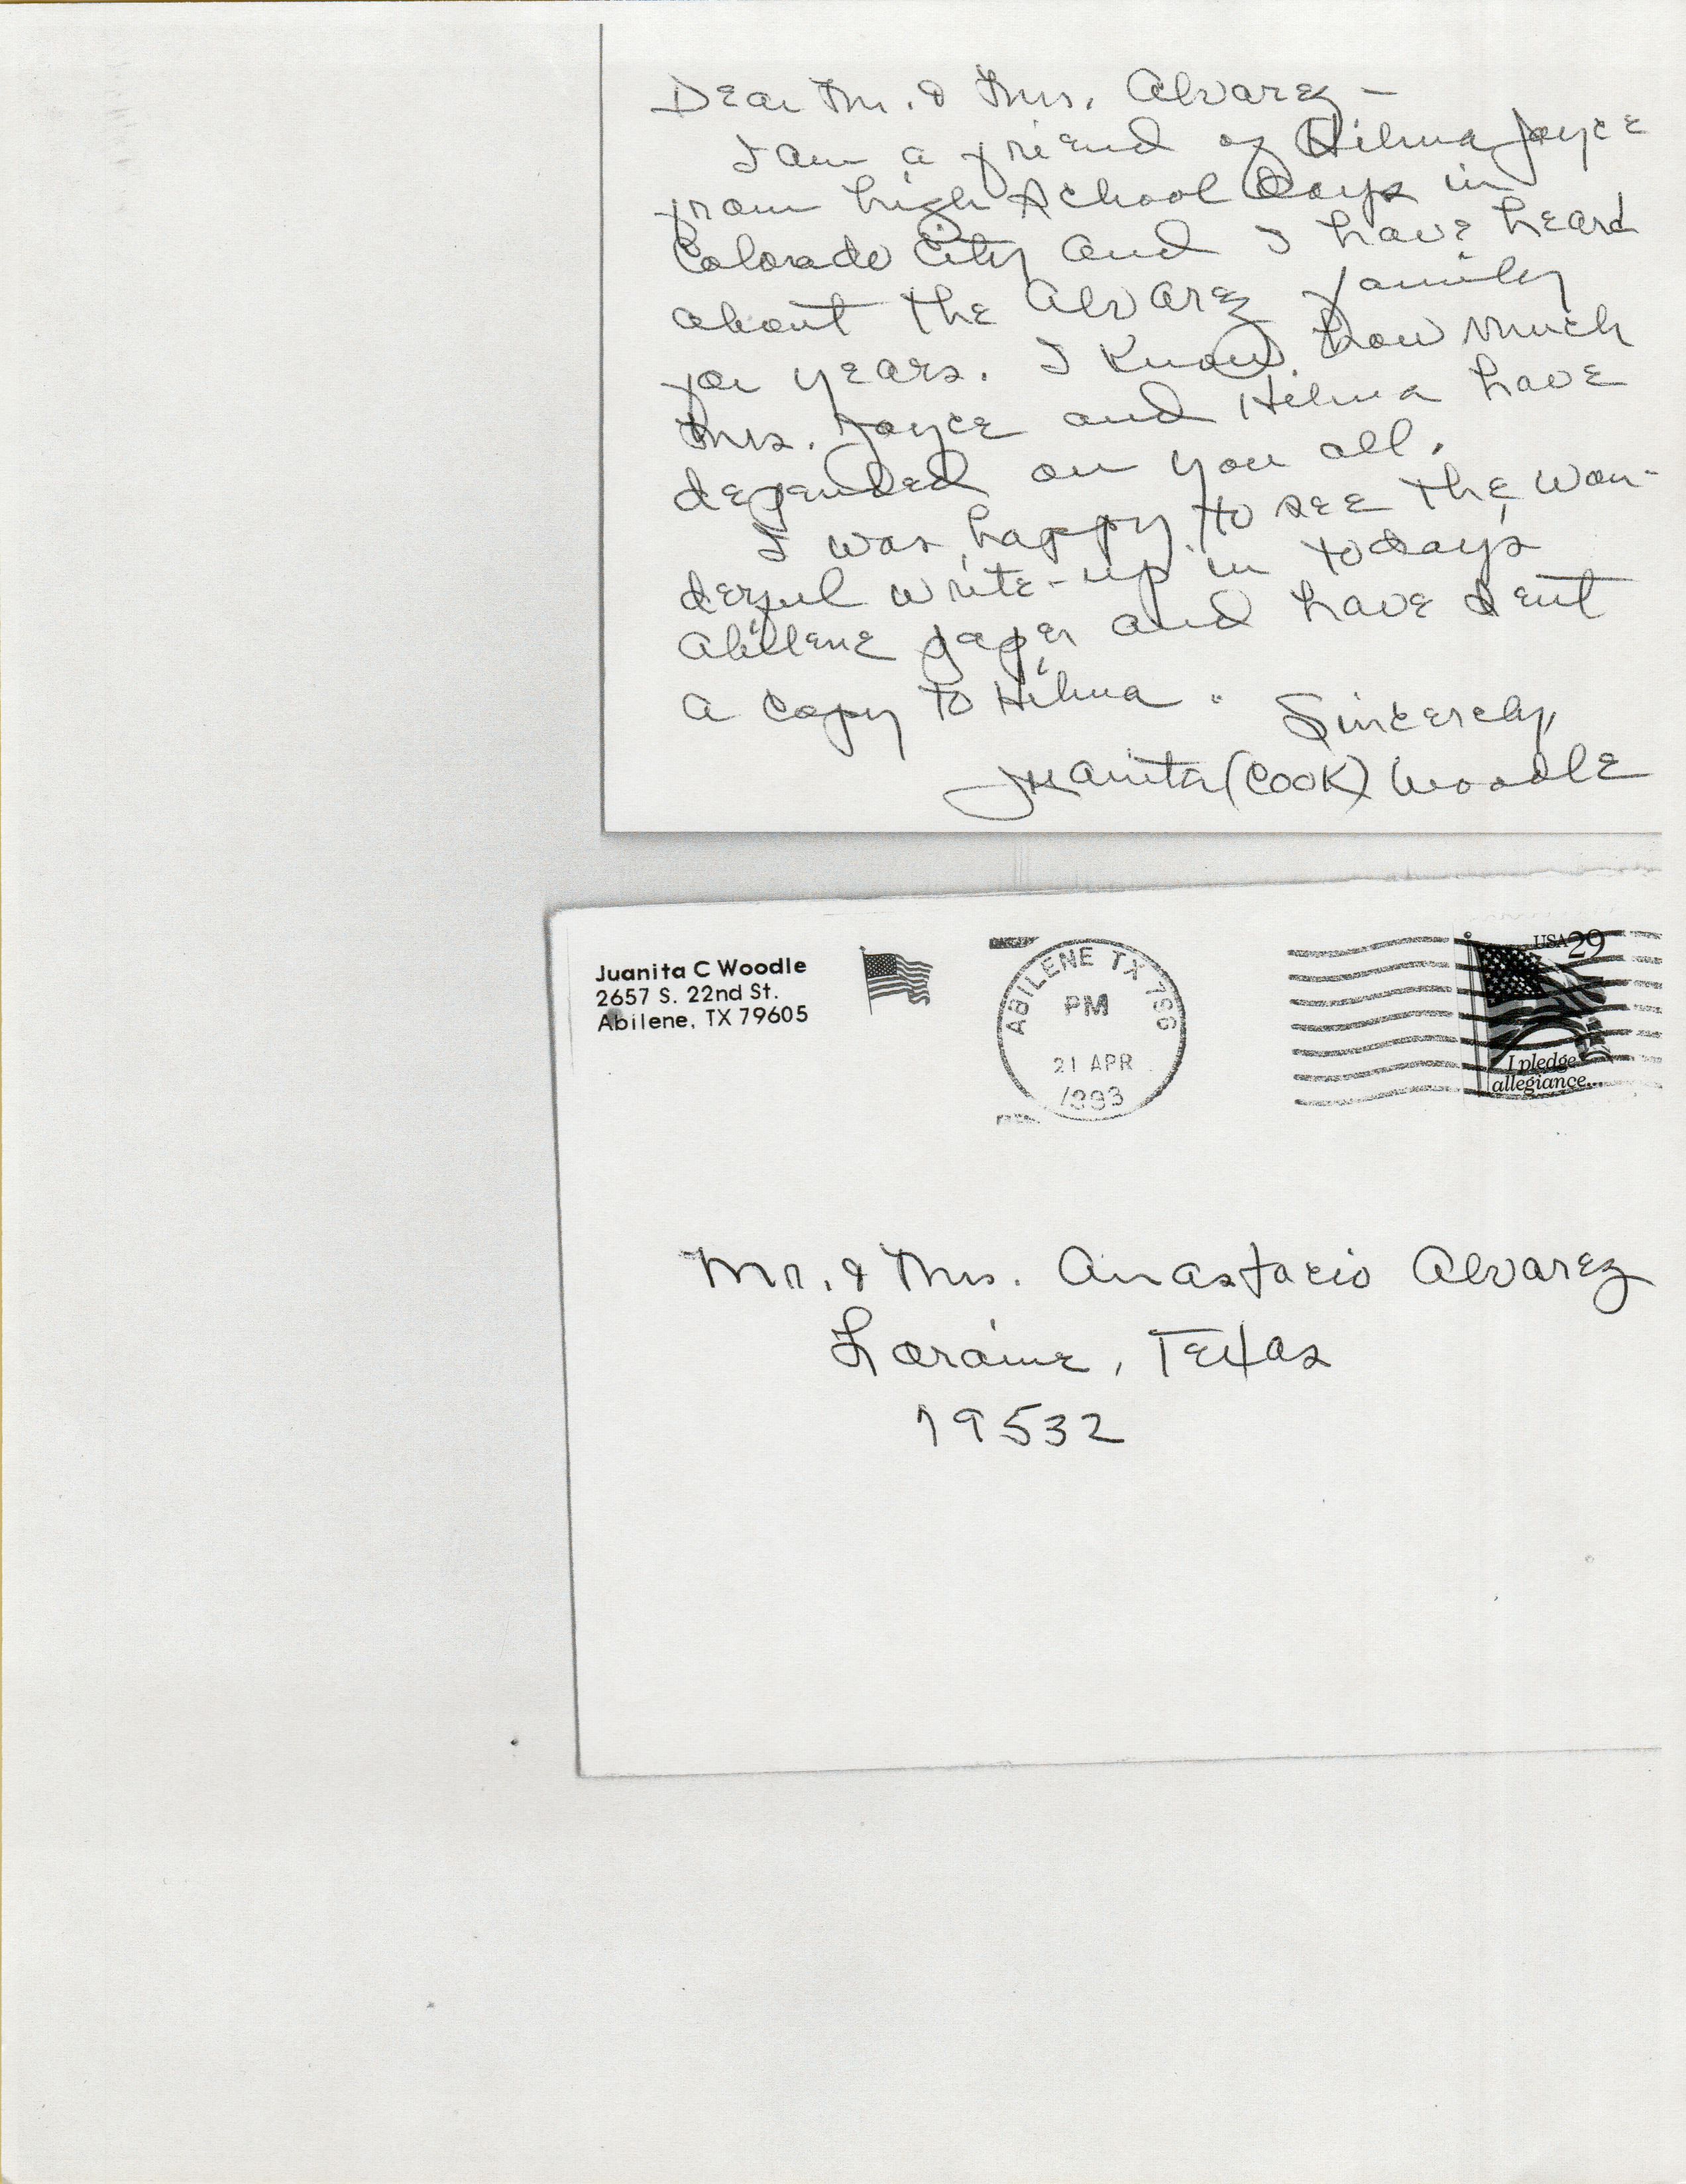 Dear Mr. & Mrs. Alvarez -
I am a friend of Hilma Joyce
from high school days in
Colorado City and I have heard
about the Alvarez family
for years. I know how much
Mrs. Joyce and Hilma have
depended on you all.
I was happy to see the won-
derful write-up in today's
Abilene paper and have sent
a copy to Hilma.
Sincerely,
Juanita (Cook) Woodle
Juanita C Woodle
2657 S. 22nd St.
Abilene, TX 79605
ABILENE TX 796
PM
21 APR
1993
USA 29
I pledge
allegiance...
Mr. & Mrs. Anastacio Alvarez
Loraine, Texas
79532